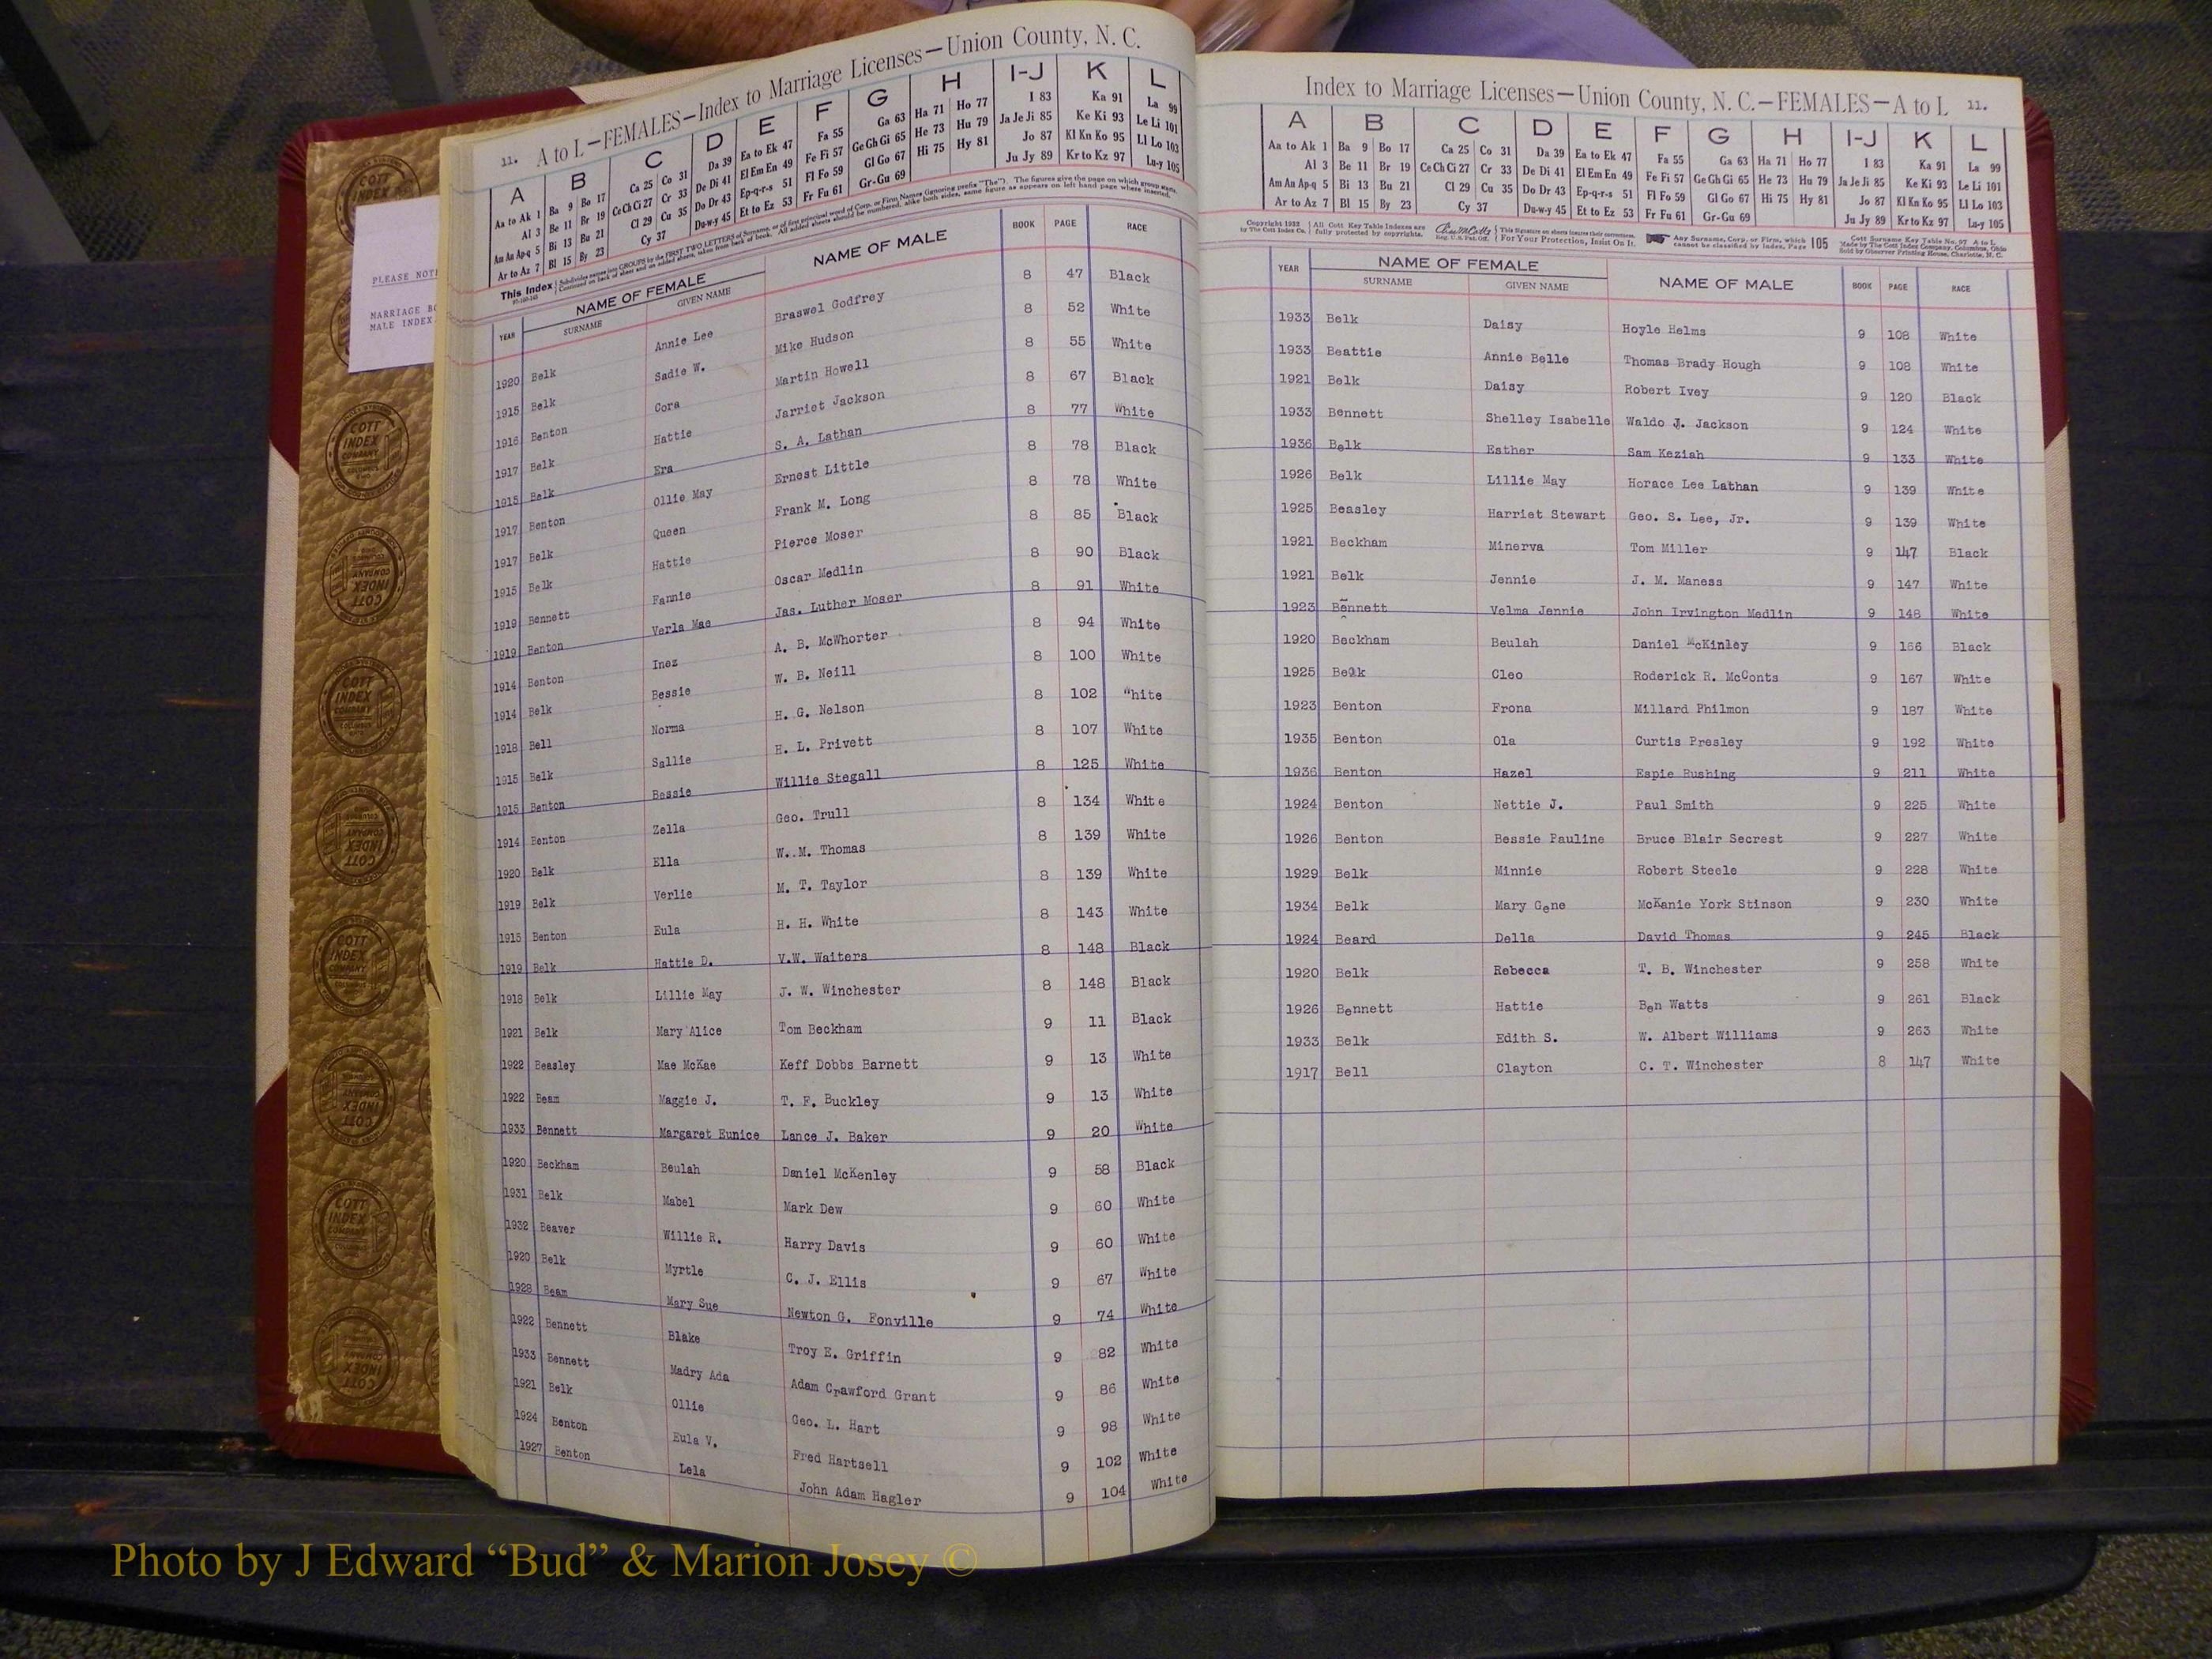 11. A to L—FEMALES—Index to Marriage Licenses—Union County, N. C.
A B C D E F G H I-J K L
Aa to Ak 1 Ba 9 Bo 17 Ca 25 Co 31 Da 39 Ea to Ek 47 Fa 55 Ga 63 Ha 71 Ho 77 I 83 Ka 91 La 99
Al 3 Be 11 Br 19 Ce Ch Ci 27 Cr 33 De Di 41 El Em En 49 Fe Fi 57 Ge Gh Gi 65 He 73 Hu 79 Ja Je Ji 85 Ke Ki 93 Le Li 101
Am An Ap-q 5 Bi 13 Bu 21 Cl 29 Cu 35 Do Dr 43 Ep-q-r-s 51 Fl Fo 59 Gl Go 67 Hi 75 Hy 81 Jo 87 Kl Kn Ko 95 Ll Lo 103
Ar to Az 7 Bl 15 By 23 Cy 37 Du-w-y 45 Et to Ez 53 Fr Fu 61 Gr-Gu 69 Ju Jy 89 Kr to Kz 97 Lu-y 105
This Index Subdivides names into GROUPS by the FIRST TWO LETTERS of Surname, or of first principal word of Corp. or Firm Names (ignoring prefix "The"). The figures give the page on which group starts.
Continued on back of sheet and on added sheets, taken from back of book. All added sheets should be numbered, alike both sides, same figure as appears on left hand page where inserted.
YEAR NAME OF FEMALE NAME OF MALE BOOK PAGE RACE
SURNAME GIVEN NAME
1920 Belk Annie Lee Braswel Godfrey 8 47 Black
1915 Belk Sadie W. Mike Hudson 8 52 White
1916 Benton Cora Martin Howell 8 55 White
1917 Belk Hattie Jarriet Jackson 8 67 Black
1915 Belk Era S. A. Lathan 8 77 White
1917 Benton Ollie May Ernest Little 8 78 Black
1917 Belk Queen Frank M. Long 8 78 White
1915 Belk Hattie Pierce Moser 8 85 Black
1919 Bennett Fannie Oscar Medlin 8 90 Black
1919 Benton Verla Mae Jas. Luther Moser 8 91 White
1914 Benton Inez A. B. McWhorter 8 94 White
1914 Belk Bessie W. B. Neill 8 100 White
1918 Bell Norma H. G. Nelson 8 102 White
1915 Belk Sallie H. L. Privett 8 107 White
1915 Benton Bessie Willie Stegall 8 125 White
1914 Benton Zella Geo. Trull 8 134 White
1920 Belk Ella W. M. Thomas 8 139 White
1919 Belk Verlie M. T. Taylor 8 139 White
1915 Benton Eula H. H. White 8 143 White
1919 Belk Hattie D. V.W. Walters 8 148 Black
1918 Belk Lillie May J. W. Winchester 8 148 Black
1921 Belk Mary Alice Tom Beckham 9 11 Black
1922 Beasley Mae McRae Keff Dobbs Barnett 9 13 White
1922 Beam Maggie J. T. F. Buckley 9 13 White
1933 Bennett Margaret Eunice Lance J. Baker 9 20 White
1920 Beckham Beulah Daniel McKenley 9 58 Black
1931 Belk Mabel Mark Dew 9 60 White
1932 Beaver Willie R. Harry Davis 9 60 White
1920 Belk Myrtle C. J. Ellis 9 67 White
1928 Beam Mary Sue Newton G. Fonville 9 74 White
1922 Bennett Blake Troy E. Griffin 9 82 White
1933 Bennett Madry Ada Adam Crawford Grant 9 86 White
1921 Belk Ollie Geo. L. Hart 9 98 White
1924 Benton Eula V. Fred Hartsell 9 102 White
1927 Benton Lela John Adam Hagler 9 104 White
Index to Marriage Licenses—Union County, N. C.—FEMALES—A to L 11.
A B C D E F G H I-J K L
Aa to Ak 1 Ba 9 Bo 17 Ca 25 Co 31 Da 39 Ea to Ek 47 Fa 55 Ga 63 Ha 71 Ho 77 I 83 Ka 91 La 99
Al 3 Be 11 Br 19 Ce Ch Ci 27 Cr 33 De Di 41 El Em En 49 Fe Fi 57 Ge Gh Gi 65 He 73 Hu 79 Ja Je Ji 85 Ke Ki 93 Le Li 101
Am An Ap-q 5 Bi 13 Bu 21 Cl 29 Cu 35 Do Dr 43 Ep-q-r-s 51 Fl Fo 59 Gl Go 67 Hi 75 Hy 81 Jo 87 Kl Kn Ko 95 Ll Lo 103
Ar to Az 7 Bl 15 By 23 Cy 37 Du-w-y 45 Et to Ez 53 Fr Fu 61 Gr-Gu 69 Ju Jy 89 Kr to Kz 97 Lu-y 105
Copyright 1935 All Cott Key Table Indexes are This Signature on sheets insures their correctness. Any Surname, Corp. or Firm, which Cott Surname Key Table No. 97 A to L
by The Cott Index Co. fully protected by copyrights. Reg. U. S. Pat. Off. For Your Protection, Insist On It. cannot be classified by Index, Page 105 Made by The Cott Index Company, Columbus, Ohio
Sold by Observer Printing House, Charlotte, N. C.
YEAR NAME OF FEMALE NAME OF MALE BOOK PAGE RACE
SURNAME GIVEN NAME
1933 Belk Daisy Hoyle Helms 9 108 White
1933 Beattie Annie Belle Thomas Brady Hough 9 108 White
1921 Belk Daisy Robert Ivey 9 120 Black
1933 Bennett Shelley Isabelle Waldo J. Jackson 9 124 White
1936 Belk Esther Sam Keziah 9 133 White
1926 Belk Lillie May Horace Lee Lathan 9 139 White
1925 Beasley Harriet Stewart Geo. S. Lee, Jr. 9 139 White
1921 Beckham Minerva Tom Miller 9 147 Black
1921 Belk Jennie J. M. Maness 9 147 White
1923 Bennett Velma Jennie John Irvington Medlin 9 148 White
1920 Beckham Beulah Daniel McKinley 9 166 Black
1925 Belk Cleo Roderick R. McConts 9 167 White
1923 Benton Frona Millard Philmon 9 187 White
1935 Benton Ola Curtis Presley 9 192 White
1936 Benton Hazel Espie Rushing 9 211 White
1924 Benton Nettie J. Paul Smith 9 225 White
1926 Benton Bessie Pauline Bruce Blair Secrest 9 227 White
1929 Belk Minnie Robert Steele 9 228 White
1934 Belk Mary Gene McKanie York Stinson 9 230 White
1924 Beard Della David Thomas 9 245 Black
1920 Belk Rebecca T. B. Winchester 9 258 White
1926 Bennett Hattie Ben Watts 9 261 Black
1933 Belk Edith S. W. Albert Williams 9 263 White
1917 Bell Clayton C. T. Winchester 8 147 White
PLEASE NOTE
MARRIAGE
MALE INDEX
COTT
INDEX
COMPANY
Photo by J Edward “Bud” & Marion Josey ©